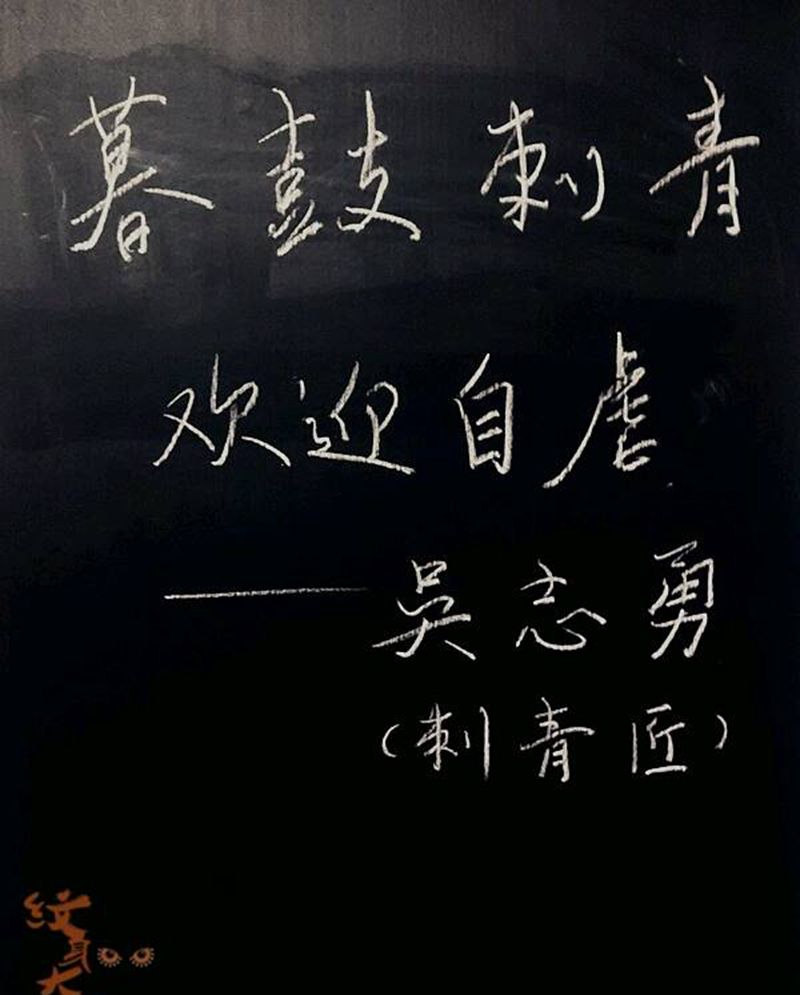 暮鼓刺青
欢迎自虐
——吴志勇
(刺青匠)
紋身大